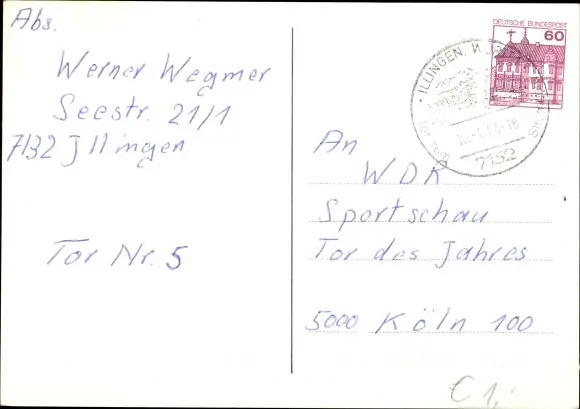 Abs.
Werner Wegmer
Seestr. 21/1
7132 Illingen
Tor Nr. 5
DEUTSCHE BUNDESPOST
60
ILLINGEN,
7132
An
WDR
Sportschau
Tor des Jahres
5000 Köln 100
€ 1,-